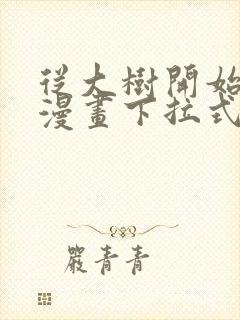 從大樹開始
漫畫下拉式
嚴青青